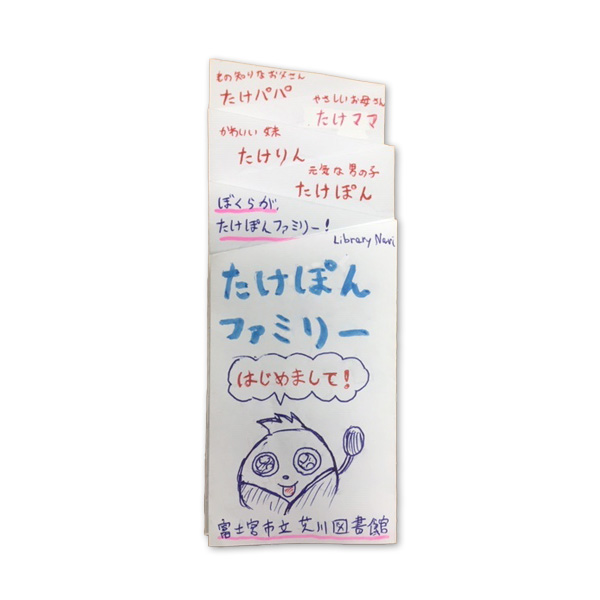 もの知りなお父さん
たけパパ
やさしいお母さん
たけママ
かわいい 妹
たけりん
元気な男の子
たけぽん
ぼくらが、
たけぽんファミリー!
Library Navi
たけぽん
ファミリー
はじめまして!
富士宮市立 芝川図書館